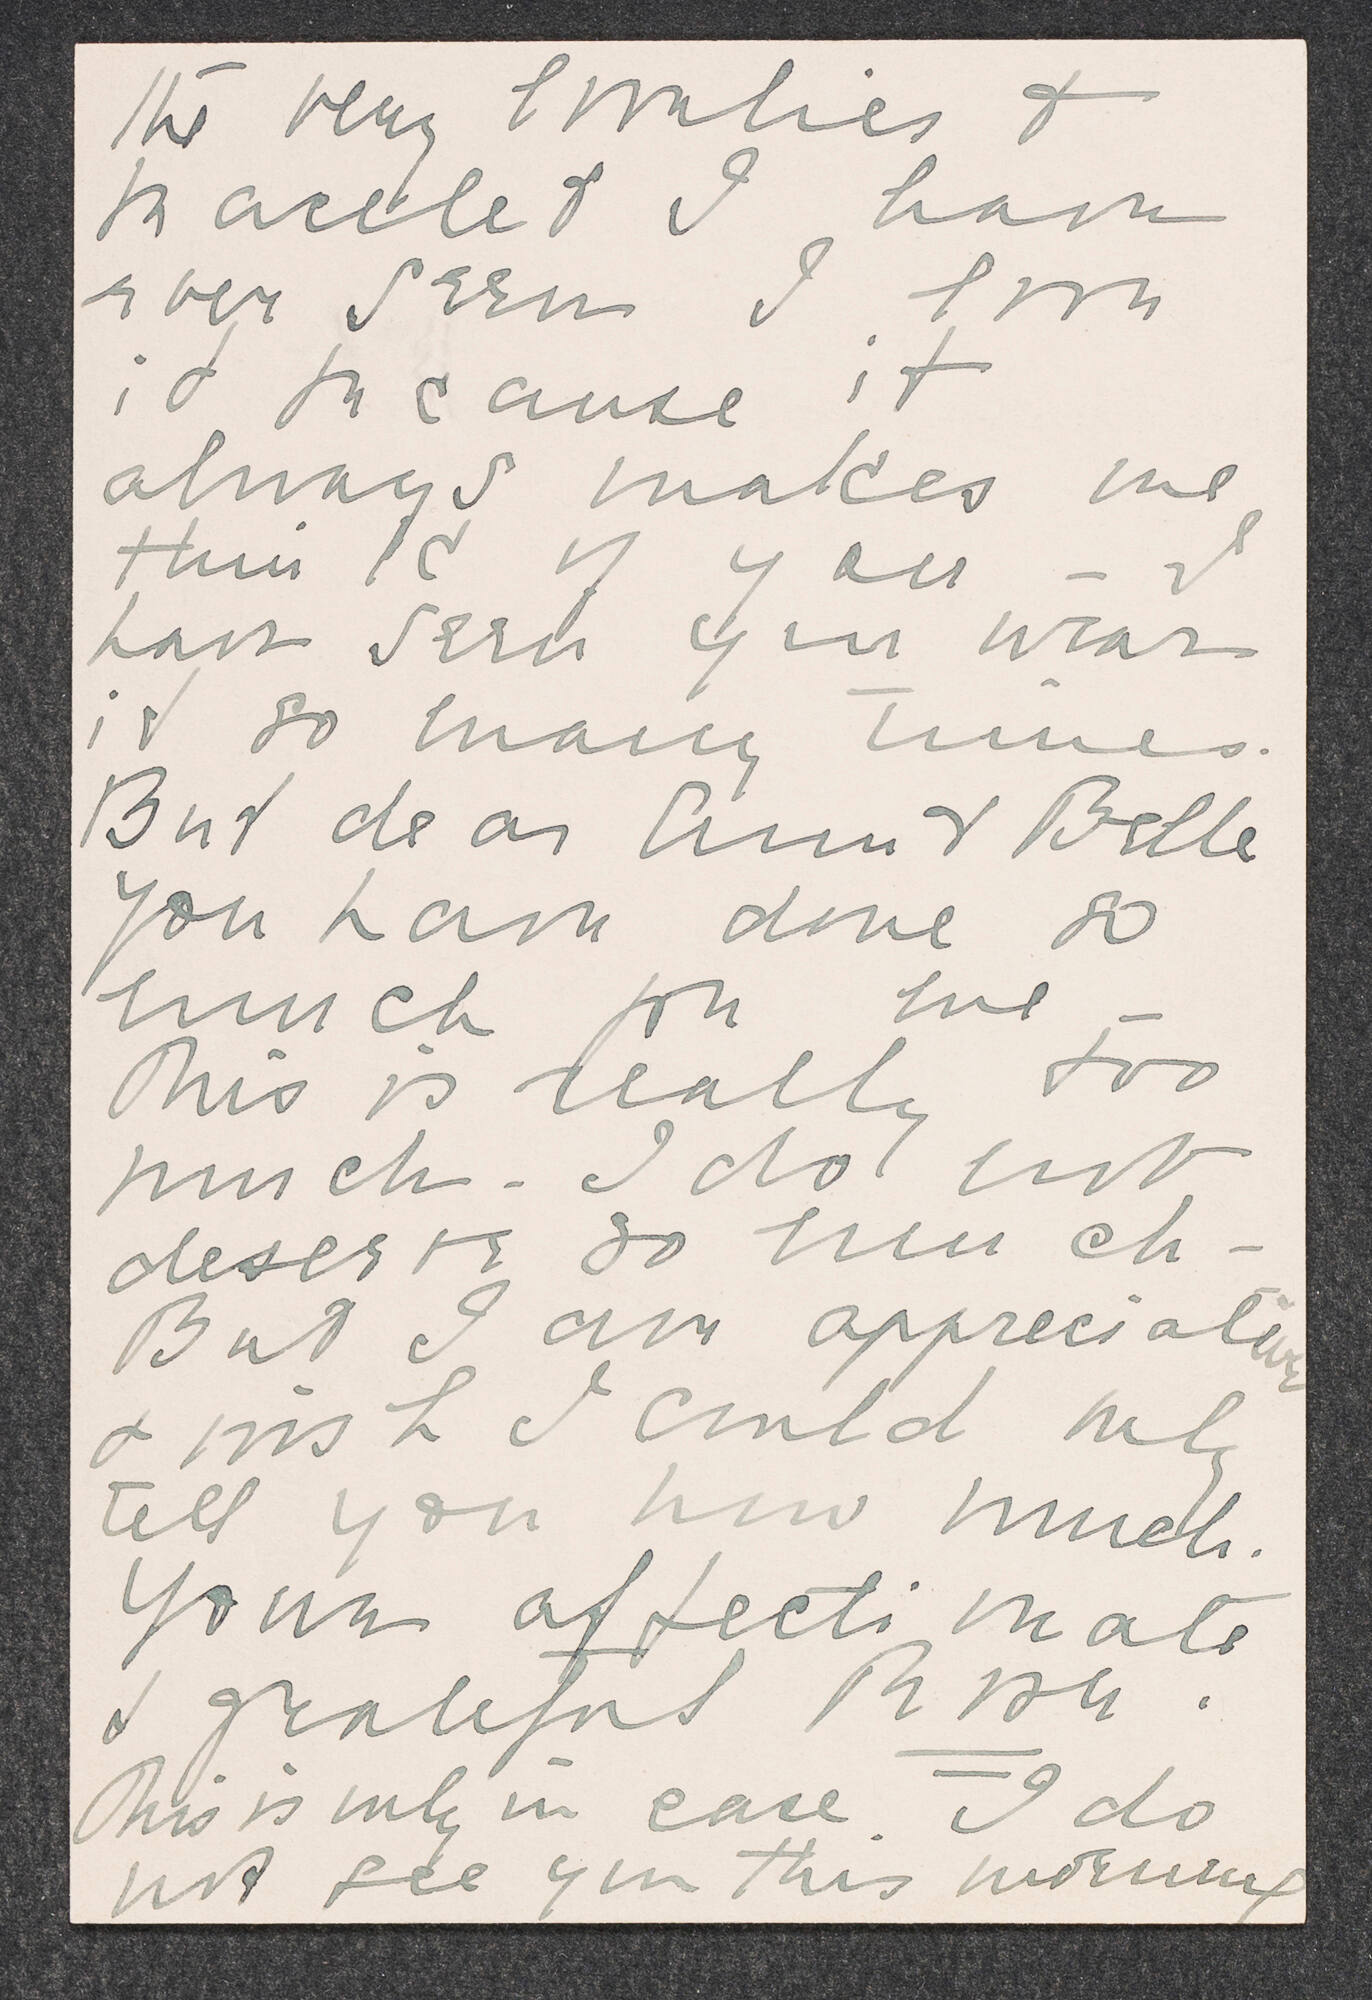 the very lovelies t
bracelet I have
ever seen I love
it because it
always makes me
think of you - I
have seen you wear
it so many times.
But dear Aunt Belle
you have done so
much for me -
This is really too
much - I do not
deserve so much -
But I am appreciative
& wish I could only
tell you how much.
Your affectionate
& grateful
This is only in case I do
not see you this morning